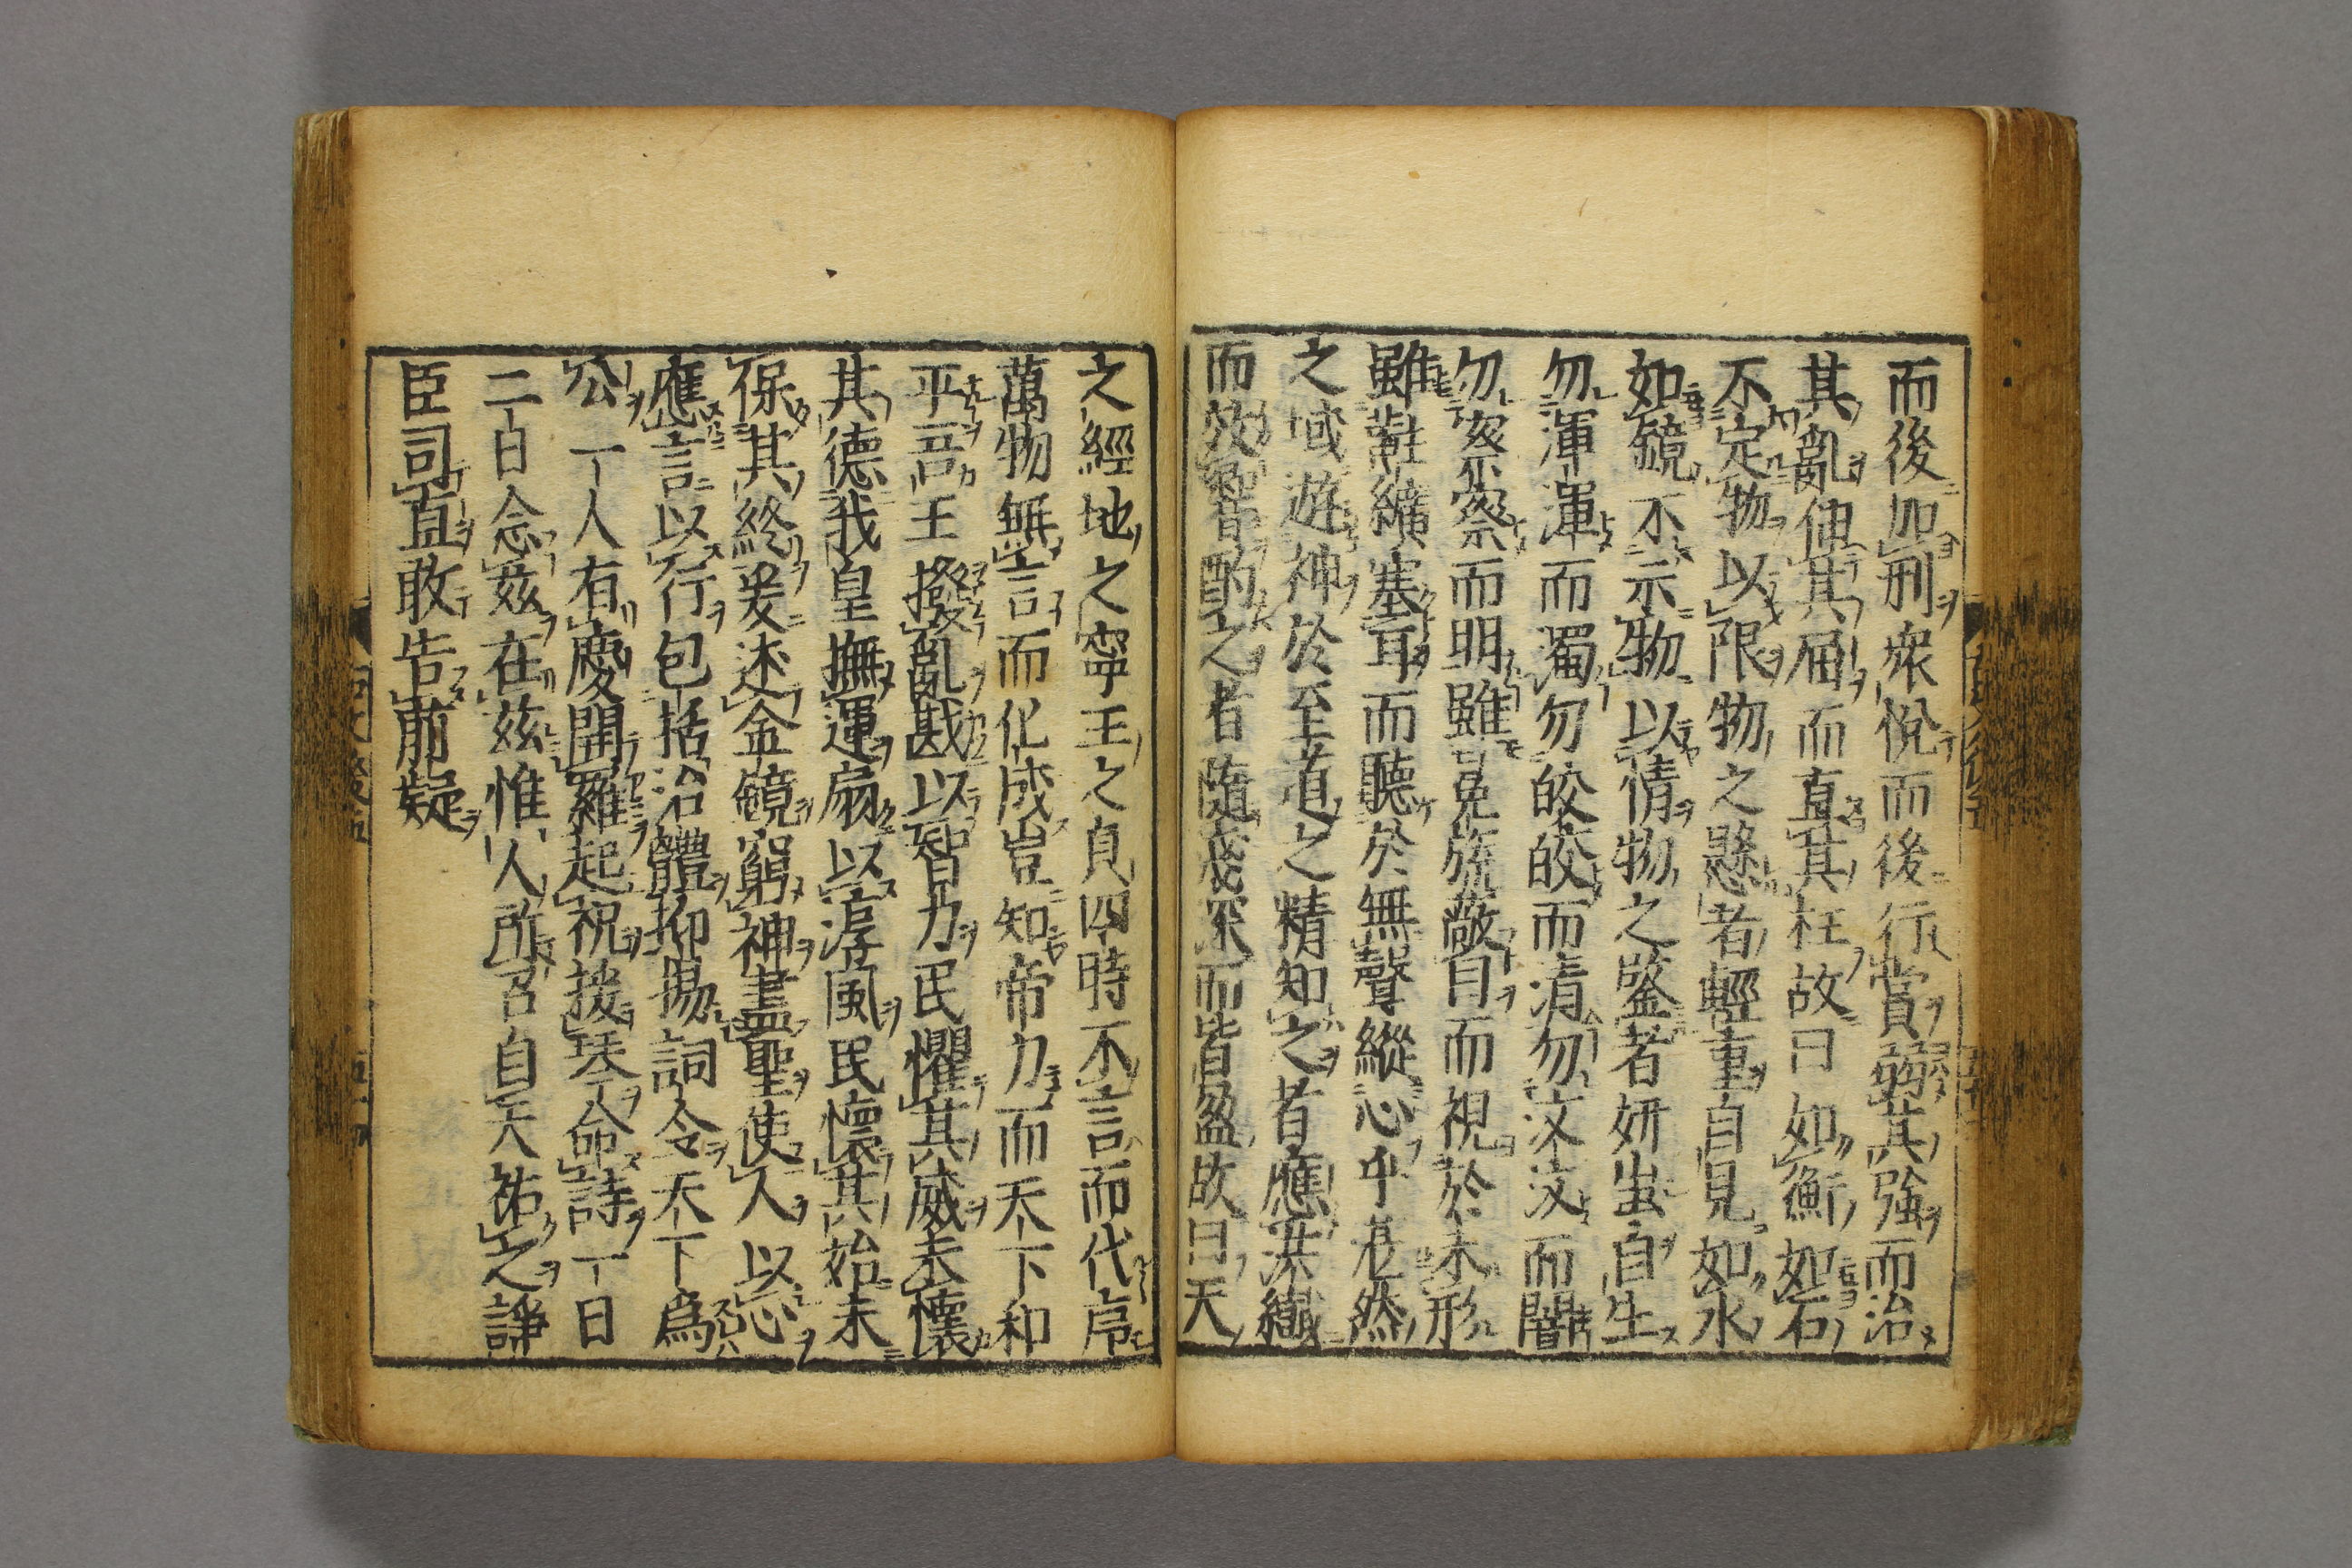 而後加刑衆悅而後行賞弱其強而治
其亂伸其屈而直其枉故曰如衡如石
不定物以限物之懸者輕重自見如水
如鏡不示物以情物之鑒者妍蚩自生
勿渾渾而濁勿皎皎而清勿汶汶而闇
勿察察而明雖冕旒蔽目而視於未形
雖黈纊塞耳而聽於無聲縱心乎湛然
之域遊神於至道之精知之者應洪纖
而效響酌之者隨淺深而皆盈故曰天
之經地之寧王之貞四時不言而代序
萬物無言而化成豈知帝力而天下和
平吾王撥亂戡以智力民懼其威未懷
其德我皇撫運扇以淳風民懷其始未
保其終爰述金鏡窮神盡聖使人以心
應言以行包括治體抑揚詞令天下爲
公一人有慶開羅起祝援琴命詩一日
二日念茲在茲惟人所召自天祐之諍
臣司直敢告前疑